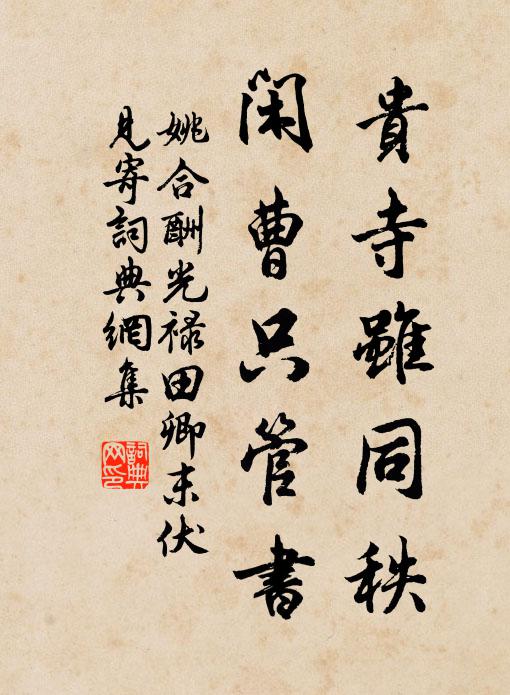 貴寺雖同秩
閑曹只管書
姚合酬光祿田卿末伏
見寄詞典網集
詞典網印